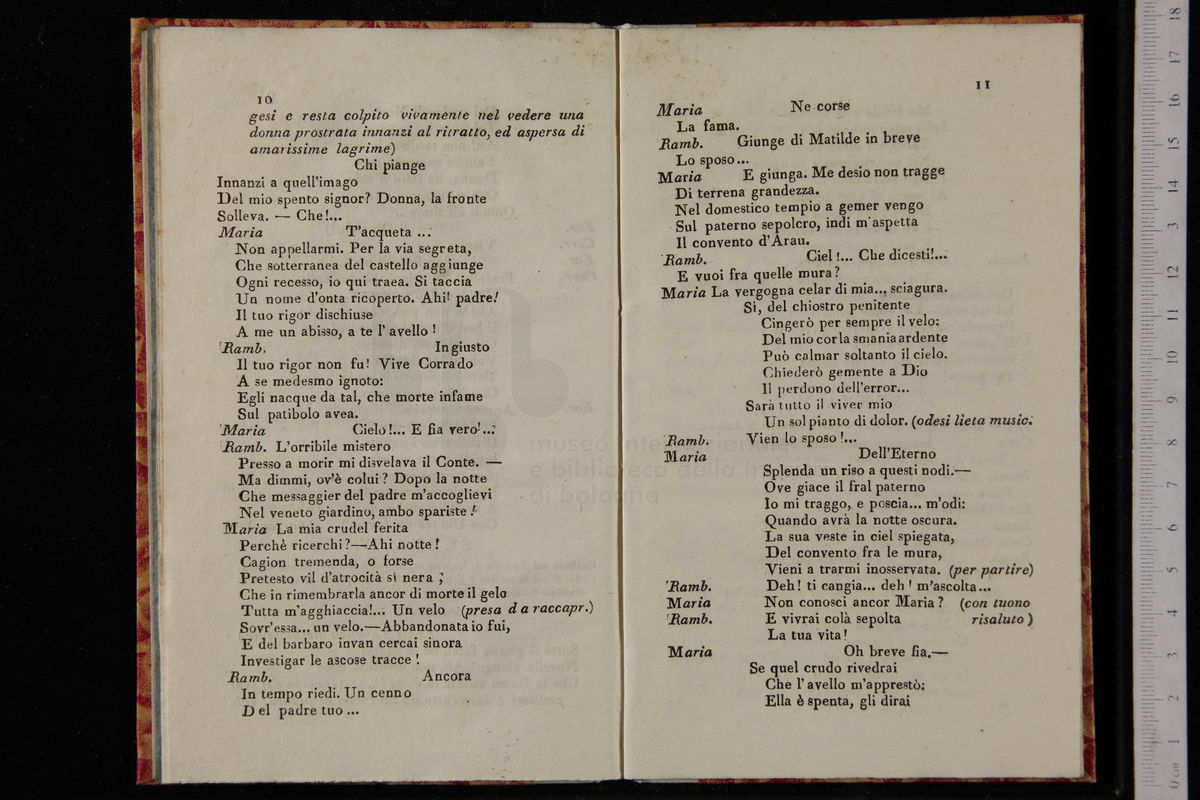 10
gesi e resta colpito vivamente nel vedere una
donna prostrata innanzi al ritratto, ed aspersa di
amarissime lagrime)
Chi piange
Innanzi a quell'imago
Del mio spento signor? Donna, la fronte
Solleva. — Che!...
Maria T'acqueta ...
Non appellarmi. Per la via segreta,
Che sotterranea del castello aggiunge
Ogni recesso, io qui traea. Si taccia
Un nome d'onta ricoperto. Ahi! padre!
Il tuo rigor dischiuse
A me un abisso, a te l'avello!
Ramb. Ingiusto
Il tuo rigor non fu! Vive Corrado
A se medesmo ignoto:
Egli nacque da tal, che morte infame
Sul patibolo avea.
Maria Cielo!... E fia vero!...
Ramb. L'orribile mistero
Presso a morir mi disvelava il Conte. —
Ma dimmi, ov'è colui? Dopo la notte
Che messaggier del padre m'accoglievi
Nel veneto giardino, ambo spariste!
Maria La mia crudel ferita
Perchè ricerchi?—Ahi notte!
Cagion tremenda, o forse
Pretesto vil d'atrocità sì nera;
Che in rimembrarla ancor di morte il gelo
Tutta m'agghiaccia!... Un velo (presa da raccapr.)
Sovr'essa... un velo.—Abbandonata io fui,
E del barbaro invan cercai sinora
Investigar le ascose tracce!
Ramb. Ancora
In tempo riedi. Un cenno
Del padre tuo ...
11
Maria Ne corse
La fama.
Ramb. Giunge di Matilde in breve
Lo sposo...
Maria E giunga. Me desio non tragge
Di terrena grandezza.
Nel domestico tempio a gemer vengo
Sul paterno sepolcro, indi m'aspetta
Il convento d'Arau.
Ramb. Ciel!... Che dicesti!...
E vuoi fra quelle mura?
Maria La vergogna celar di mia... sciagura.
Si, del chiostro penitente
Cingerò per sempre il velo:
Del mio cor la smania ardente
Può calmar soltanto il cielo.
Chiederò gemente a Dio
Il perdono dell'error...
Sarà tutto il viver mio
Un sol pianto di dolor. (odesi lieta music.
Ramb. Vien lo sposo!...
Maria Dell'Eterno
Splenda un riso a questi nodi.—
Ove giace il fral paterno
Io mi traggo, e poscia... m'odi:
Quando avrà la notte oscura.
La sua veste in ciel spiegata,
Del convento fra le mura,
Vieni a trarmi inosservata. (per partire)
Ramb. Deh! ti cangia... deh! m'ascolta...
Maria Non conosci ancor Maria? (con tuono
Ramb. E vivrai colà sepolta risaluto)
La tua vita!
Maria Oh breve fia.—
Se quel crudo rivedrai
Che l'avello m'apprestò:
Ella è spenta, gli dirai